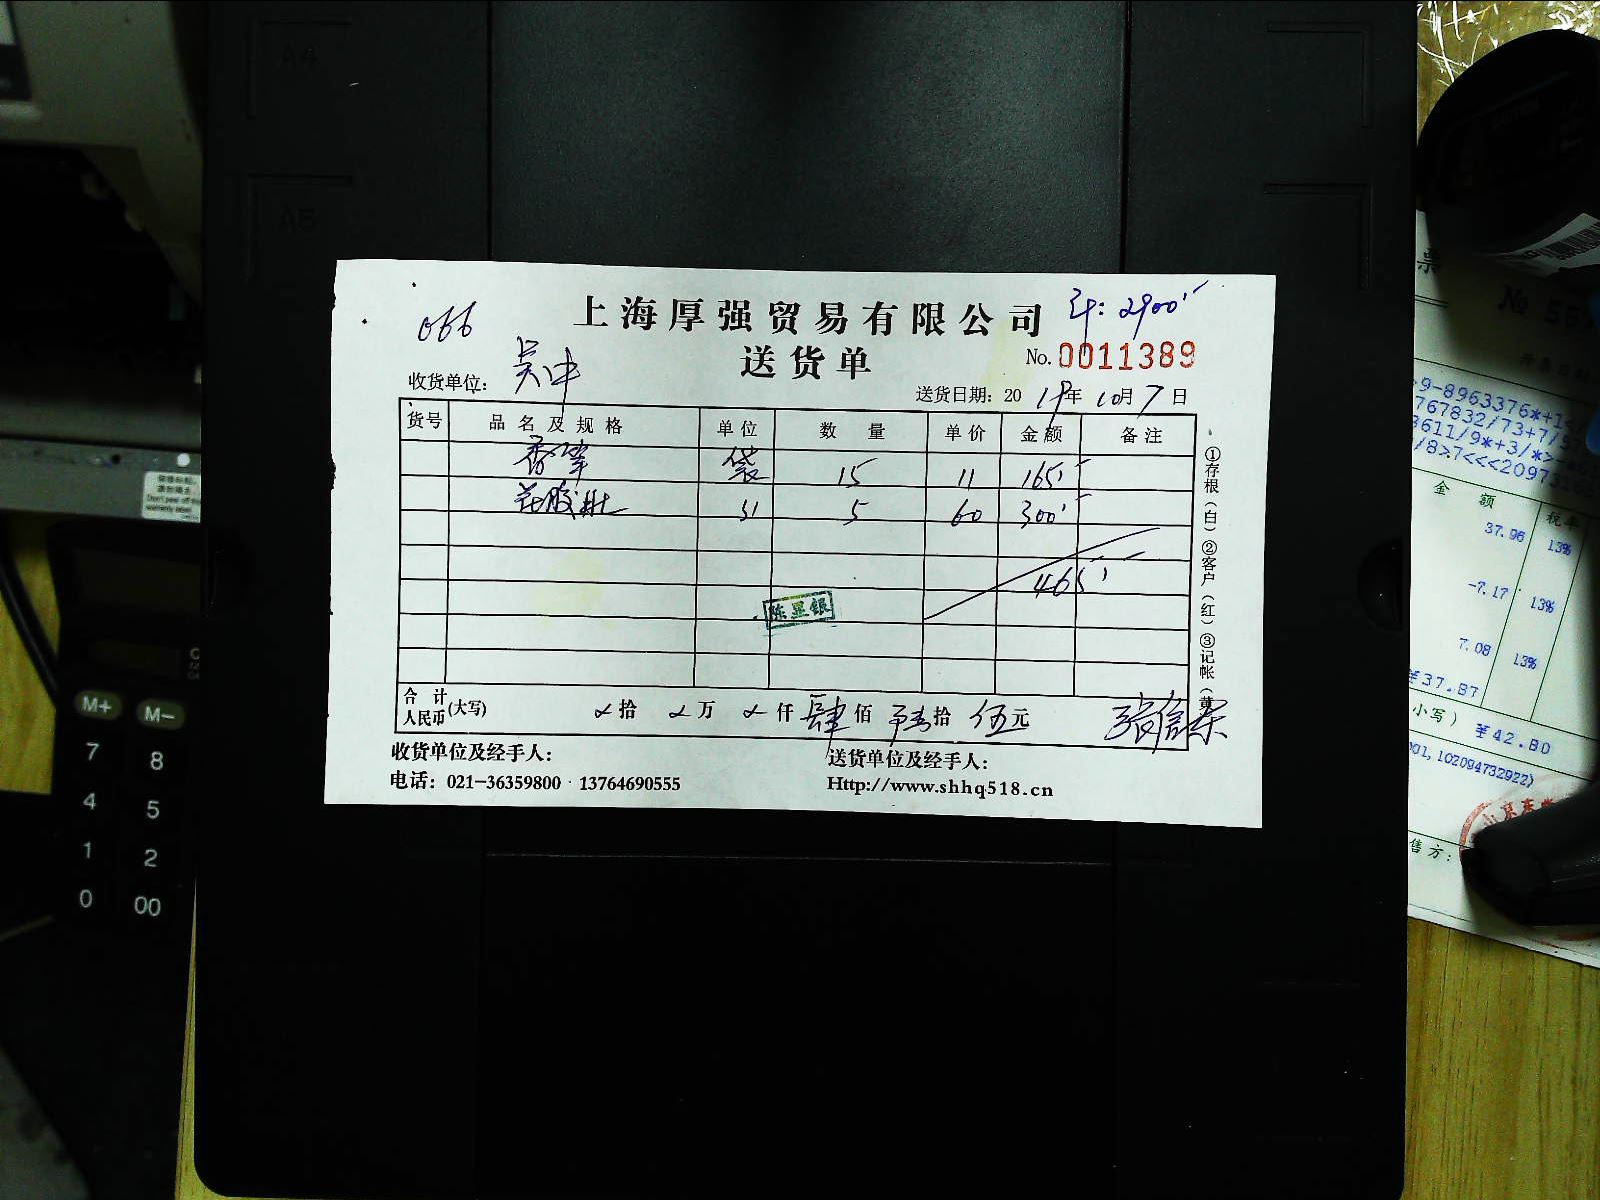 A4
A5
066
上海厚强贸易有限公司
2900
送货单
No. 0011389
收货单位: 吴中
送货日期: 2019年10月7日
货号 品名及规格 单位 数量 单价 金额 备注
袋 15 11 165
花胶 5 60 300
465
陈显银
①存根(白)②客户(红)③记帐(黄
合计人民币(大写) 拾 万 仟肆佰 拾伍元
收货单位及经手人:
送货单位及经手人:
电话: 021-36359800 13764690555
Http://www.shhq518.cn
M+ M-
7 8
4 5
1 2
0 00
票
№
9-8963376*+1
767832/73+7/
3611/9*+3/*>
/8>7<<<20973
金额 税率
37.96 13%
-7.17 13%
7.08 13%
¥37.87
小写) ¥42.80
001,102094732922)
售方: